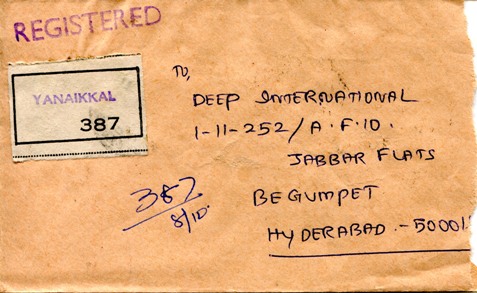 REGISTERED
YANAIKKAL
387
TO,
DEEP INTERNATIONAL
1-11-252/A.F.10.
JABBAR FLATS
BEGUMPET
HYDERABAD.-50001
387
8/10.